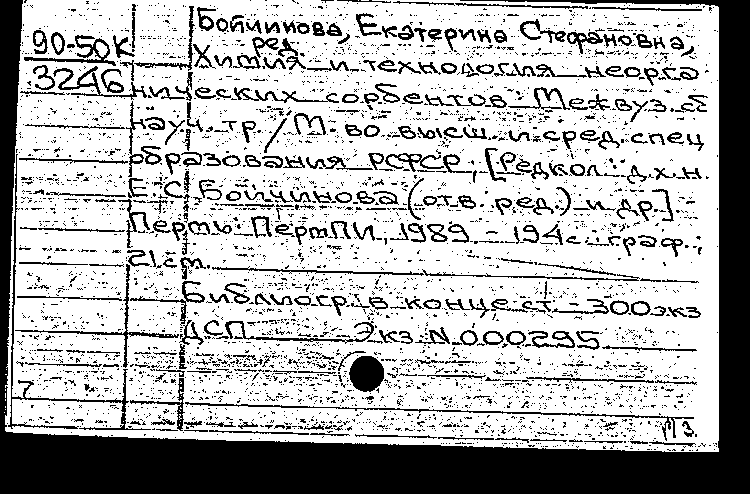 90-50К
3246
Бойчинова, Екатерина Стефановна,
ред.
Химия и технология неорга-
нических сорбентов: Межвуз. сб.
науч. тр / М-во высш. и сред. спец.
образования РСФСР; [Редкол.: д.х.н.
Е. С. Бойчинова (отв. ред.) и др.] -
Пермь: ПермПИ, 1989. - 194с.: граф.;
21см.
Библиогр. в конце ст. - 300экз
ДСП Экз N 000295
7